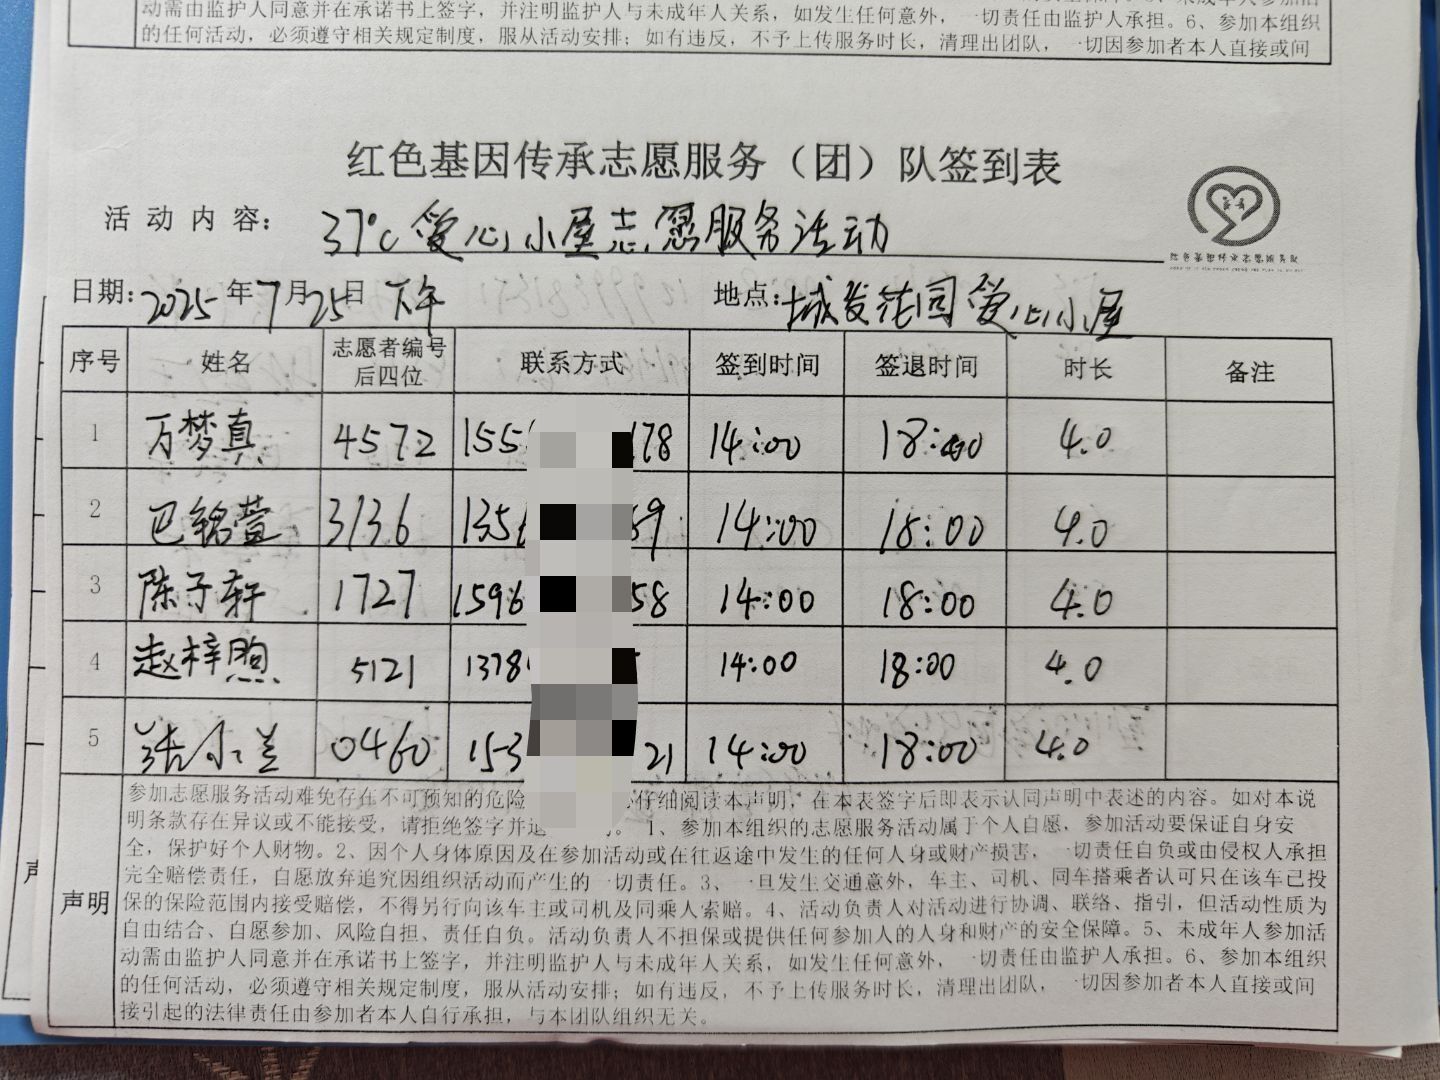 动需由监护人同意并在承诺书上签字，并注明监护人与未成年人关系，如发生任何意外，一切责任由监护人承担。6、参加本组织
的任何活动，必须遵守相关规定制度，服从活动安排；如有违反，不予上传服务时长，清理出团队，一切因参加者本人直接或间
红色基因传承志愿服务（团）队签到表
活动内容：37℃爱心小屋志愿服务活动
红色基因传承志愿服务队
日期：2025年7月25日 下午 地点：城发花园爱心小屋
序号 姓名 志愿者编号后四位 联系方式 签到时间 签退时间 时长 备注
1 万梦真 4572 155 178 14:00 18:00 4.0
2 巴铭萱 3136 1356 59 14:00 18:00 4.0
3 陈子轩 1727 1596 58 14:00 18:00 4.0
4 赵梓煦 5121 1378 14:00 18:00 4.0
5 张小兰 0460 153 21 14:00 18:00 4.0
声明
参加志愿服务活动难免存在不可预知的危险 仔细阅读本声明，在本表签字后即表示认同声明中表述的内容。如对本说
明条款存在异议或不能接受，请拒绝签字并退 。1、参加本组织的志愿服务活动属于个人自愿，参加活动要保证自身安
全，保护好个人财物。2、因个人身体原因及在参加活动或在往返途中发生的任何人身或财产损害，一切责任自负或由侵权人承担
完全赔偿责任，自愿放弃追究因组织活动而产生的一切责任。3、一旦发生交通意外，车主、司机、同车搭乘者认可只在该车已投
保的保险范围内接受赔偿，不得另行向该车主或司机及同乘人索赔。4、活动负责人对活动进行协调、联络、指引，但活动性质为
自由结合、自愿参加、风险自担、责任自负。活动负责人不担保或提供任何参加人的人身和财产的安全保障。5、未成年人参加活
动需由监护人同意并在承诺书上签字，并注明监护人与未成年人关系，如发生任何意外，一切责任由监护人承担。6、参加本组织
的任何活动，必须遵守相关规定制度，服从活动安排；如有违反，不予上传服务时长，清理出团队，一切因参加者本人直接或间
接引起的法律责任由参加者本人自行承担，与本团队组织无关。